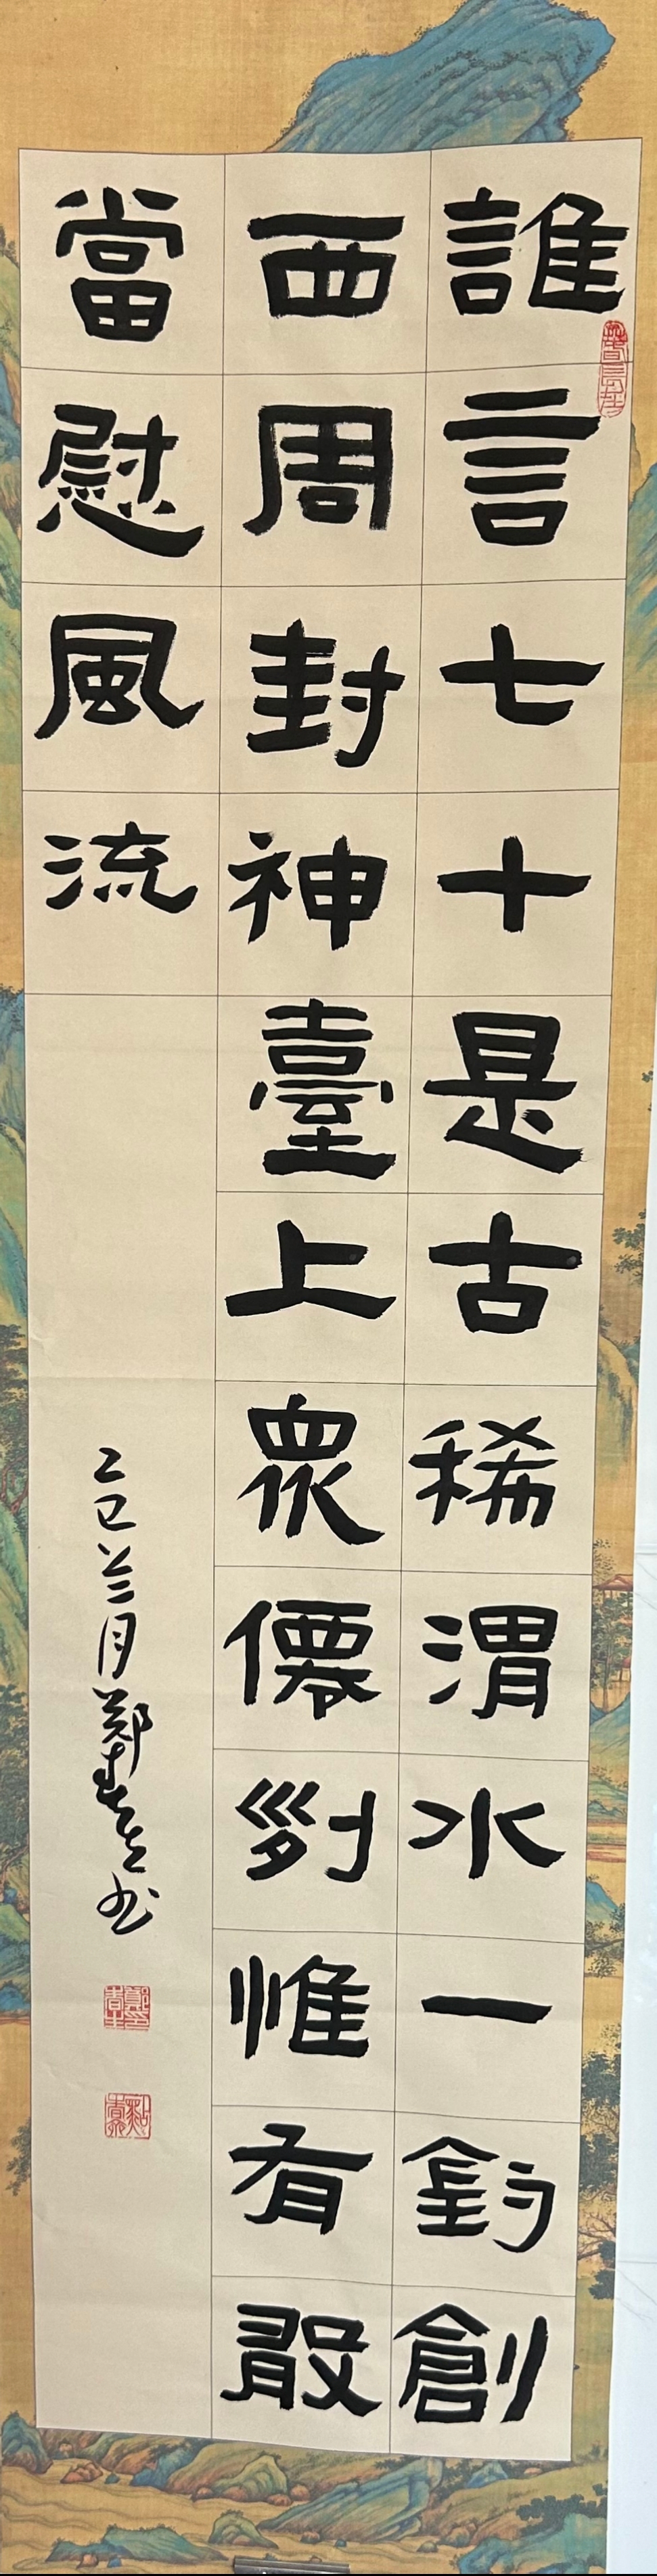 誰言七十是古稀渭水一釣創
西周封神臺上衆僊列惟有敢
當慰風流
乙巳兰月鄭春生书